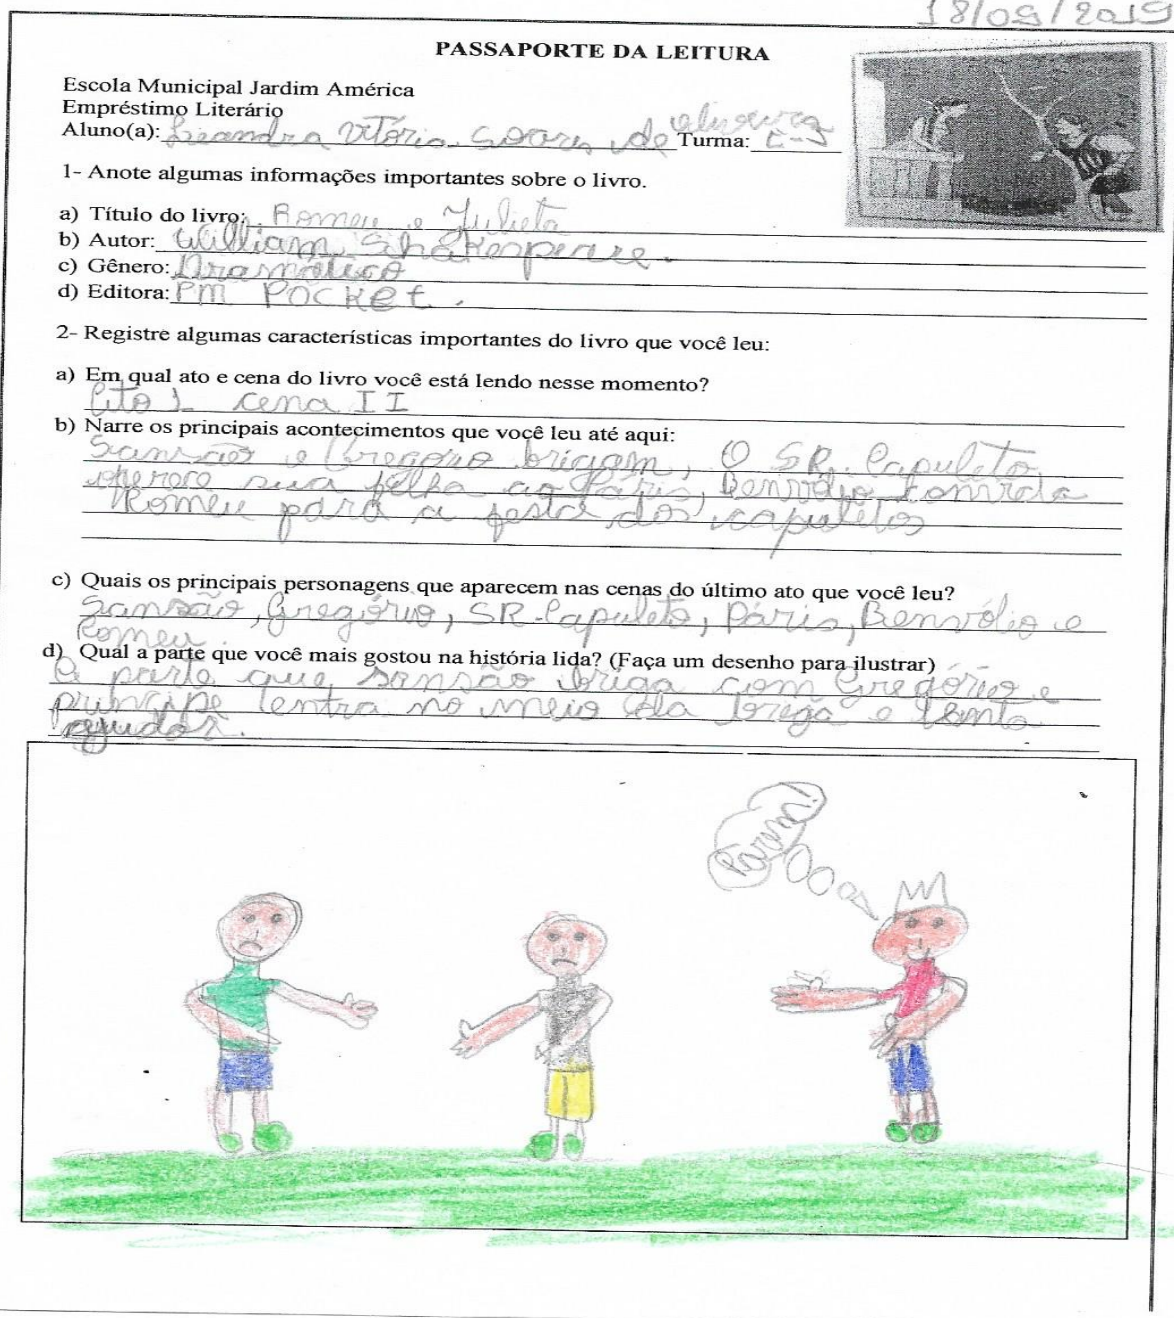 18/09/2019
PASSAPORTE DA LEITURA
Escola Municipal Jardim América
Empréstimo Literário
Aluno(a): Leandra Vitória Soares de oliveira Turma:
1- Anote algumas informações importantes sobre o livro.
a) Título do livro: Romeu e Julieta
b) Autor: William Shakespeare.
c) Gênero: Dramático
d) Editora: PM POCKET.
2- Registre algumas características importantes do livro que você leu:
a) Em qual ato e cena do livro você está lendo nesse momento?
Ato 1 cena II
b) Narre os principais acontecimentos que você leu até aqui:
Sansão e Gregório brigam, O SR. Capuleto
oferece sua filha ao Páris, Benvólio convida
Romeu para a festa dos capuletos
c) Quais os principais personagens que aparecem nas cenas do último ato que você leu?
Sansão, Gregório, SR. Capuleto, Páris, Benvólio e
Romeu.
d) Qual a parte que você mais gostou na história lida? (Faça um desenho para ilustrar)
A parte que sansão briga com Gregório e
principe tentra no meio da brega e tenta
ajudar.
Parem!